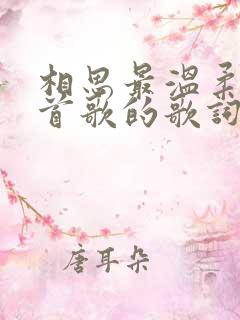 相思最温柔
首歌的歌词
唐耳朵